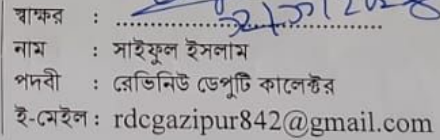 স্বাক্ষর :
নাম : সাইফুল ইসলাম
পদবী : রেভিনিউ ডেপুটি কালেক্টর
ই-মেইল : rdcgazipur842@gmail.com